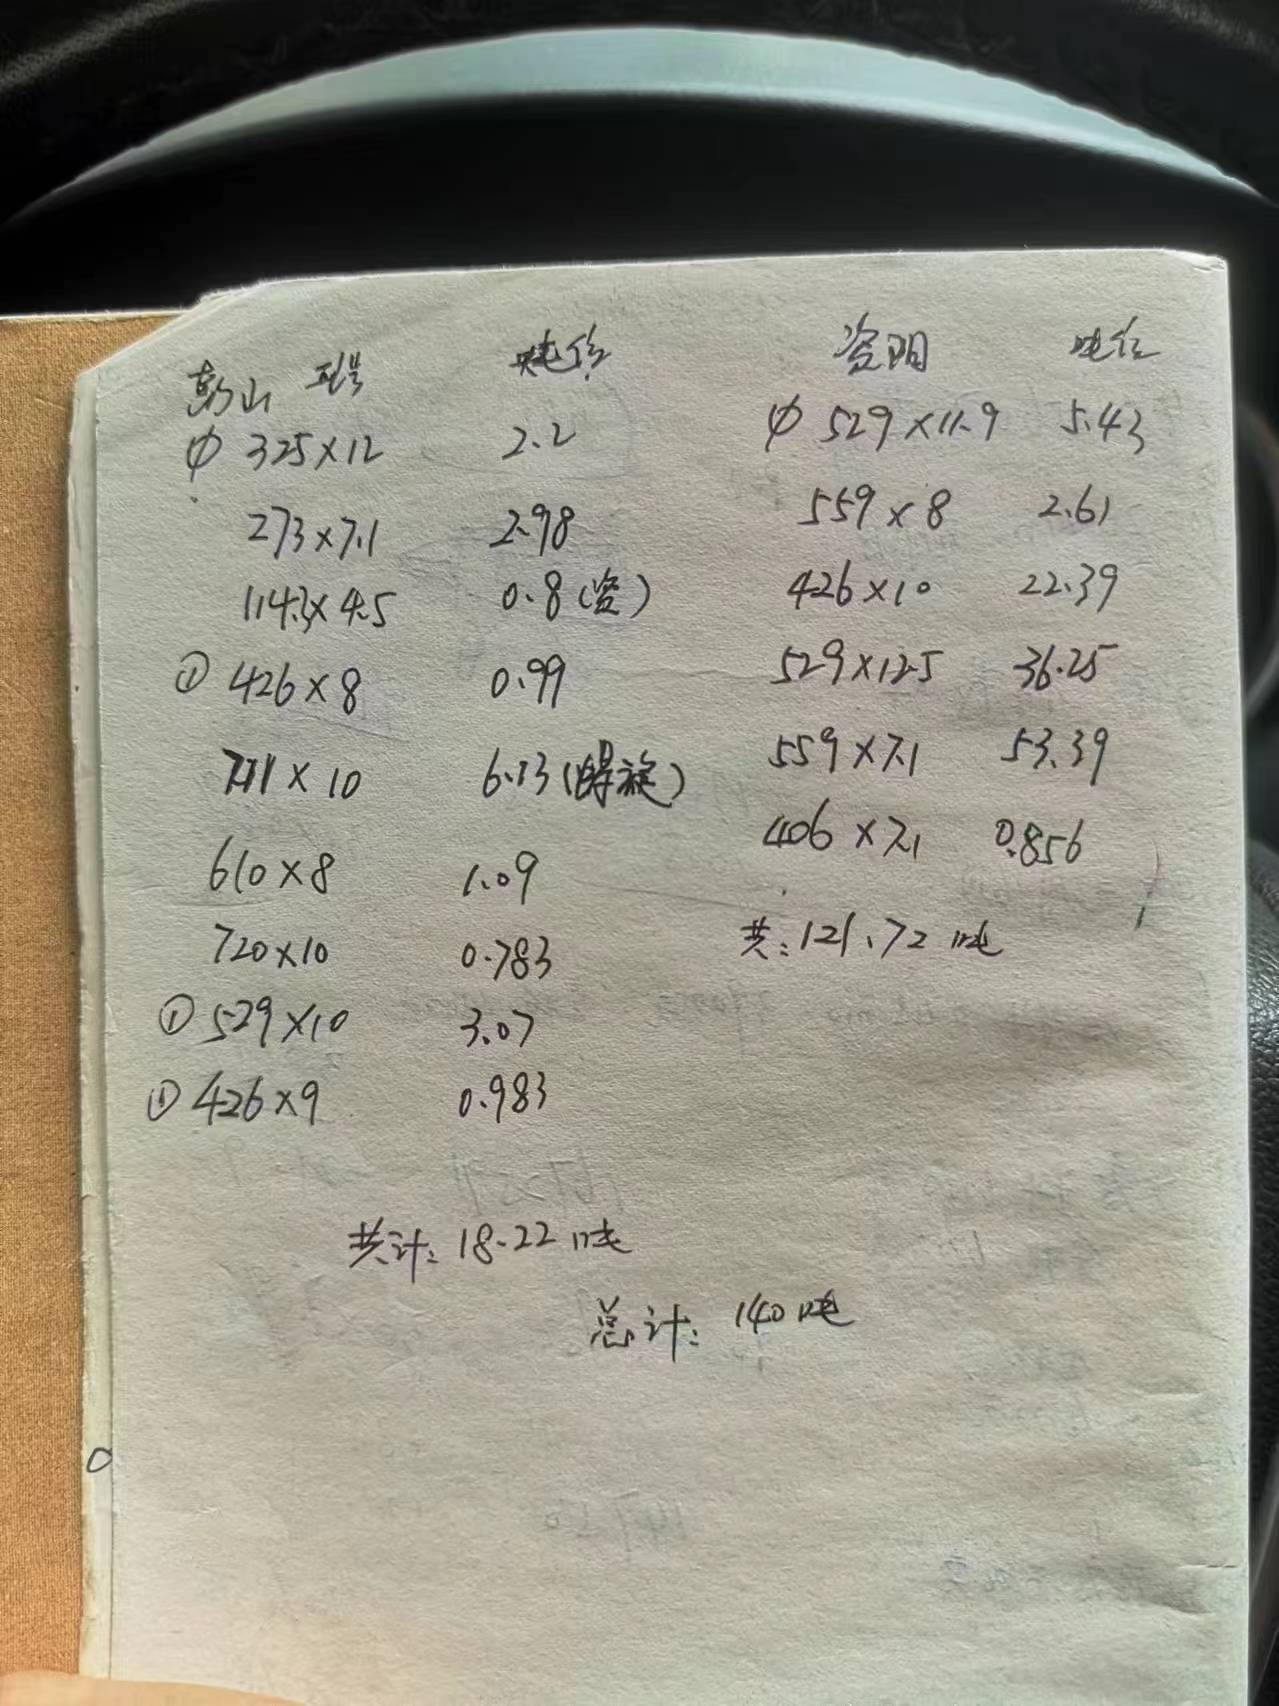 彭山 型号 吨位
φ 325×12 2.2
273×7.1 2.98
114.3×4.5 0.8(资)
① 426×8 0.99
711×10 6.13(螺旋)
610×8 1.09
720×10 0.783
① 529×10 3.07
① 426×9 0.983
共计:18.22吨
资阳 吨位
φ 529×11.9 5.43
559×8 2.61
426×10 22.39
529×12.5 36.25
559×7.1 53.39
406×7.1 0.856
共:121.72吨
总计:140吨
0